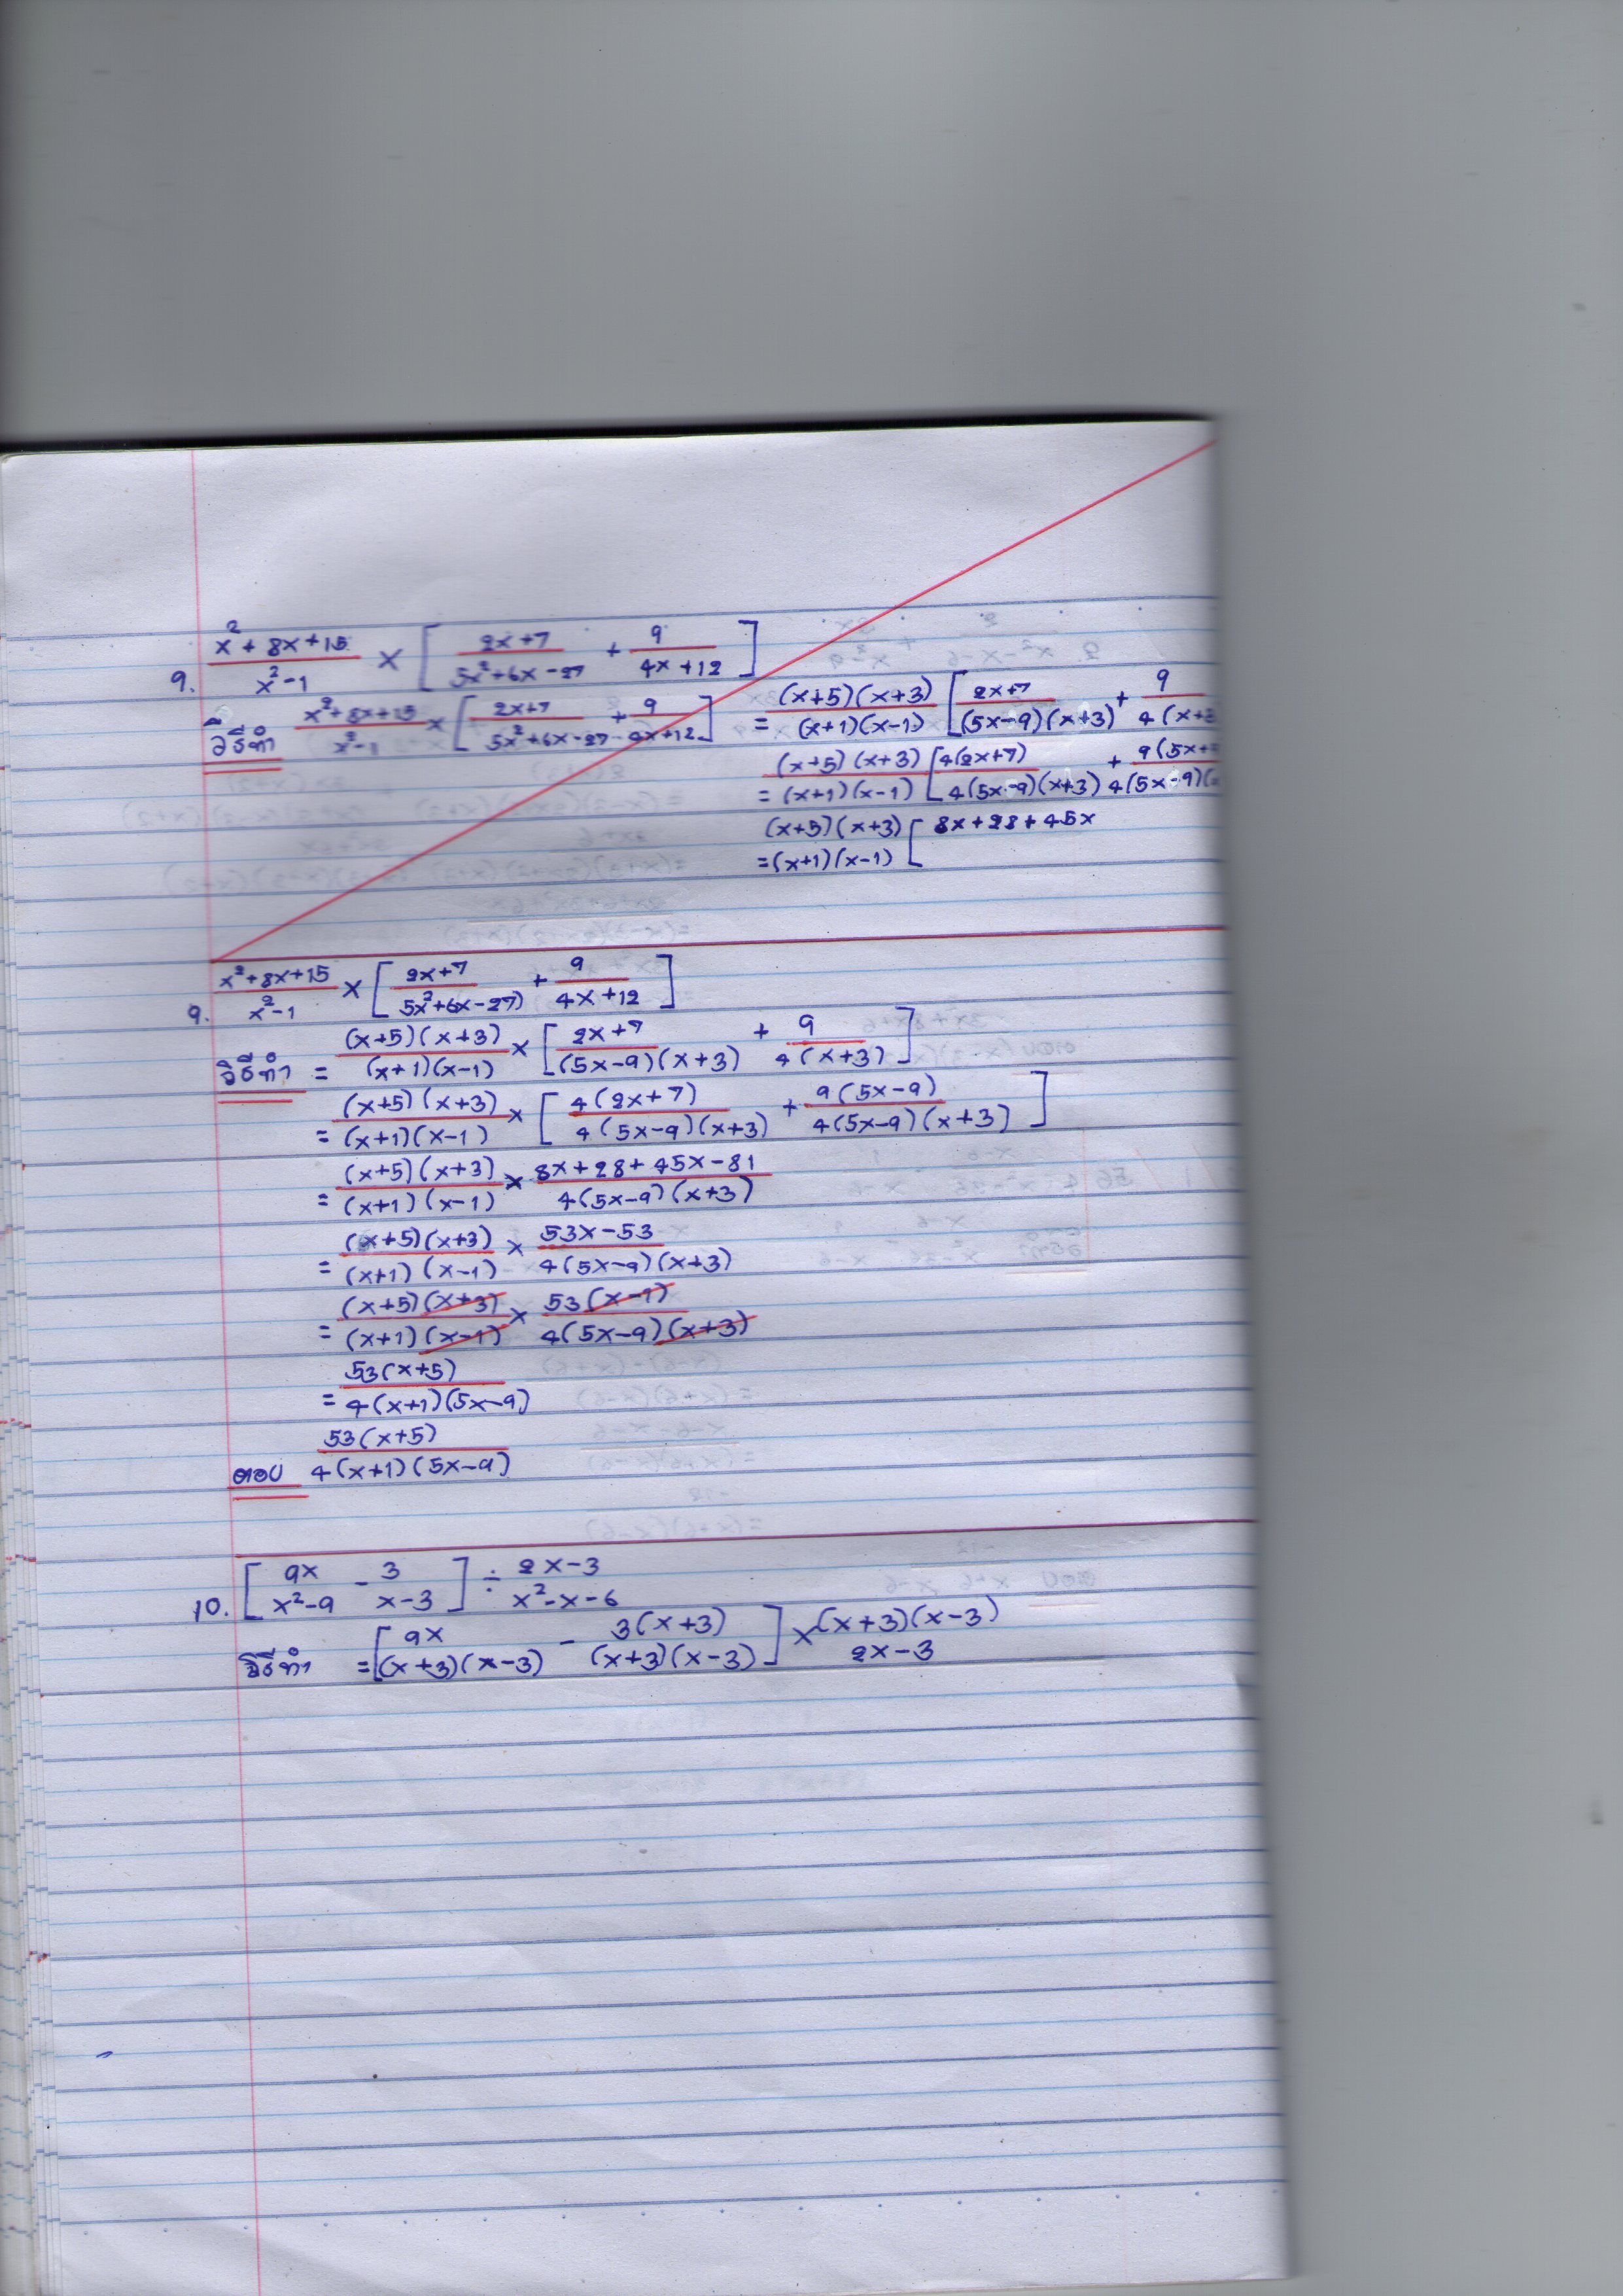 9. (x²+8x+15)/(x²-1) × [ (2x+7)/(5x²+6x-27) + 9/(4x+12) ]
วิธีทำ (x²+8x+15)/(x²-1) × [ (2x+7)/(5x²+6x-27) + 9/(4x+12) ]
= (x+5)(x+3)/(x+1)(x-1) [ (2x+7)/(5x-9)(x+3) + 9/4(x+3
= (x+5)(x+3)/(x+1)(x-1) [ 4(2x+7)/4(5x-9)(x+3) + 9(5x+/4(5x-9)(
= (x+5)(x+3)/(x+1)(x-1) [ 8x+28+45x
9. (x²+8x+15)/(x²-1) × [ (2x+7)/(5x²+6x-27) + 9/(4x+12) ]
วิธีทำ = (x+5)(x+3)/(x+1)(x-1) × [ (2x+7)/(5x-9)(x+3) + 9/4(x+3) ]
= (x+5)(x+3)/(x+1)(x-1) × [ 4(2x+7)/4(5x-9)(x+3) + 9(5x-9)/4(5x-9)(x+3) ]
= (x+5)(x+3)/(x+1)(x-1) × (8x+28+45x-81)/4(5x-9)(x+3)
= (x+5)(x+3)/(x+1)(x-1) × (53x-53)/4(5x-9)(x+3)
= (x+5)(x+3)/(x+1)(x-1) × 53(x-1)/4(5x-9)(x+3)
= 53(x+5)/4(x+1)(5x-9)
ตอบ 53(x+5)/4(x+1)(5x-9)
10. [ 9x/(x²-9) - 3/(x-3) ] ÷ (2x-3)/(x²-x-6)
วิธีทำ = [ 9x/(x+3)(x-3) - 3(x+3)/(x+3)(x-3) ] × (x+3)(x-3)/(2x-3)